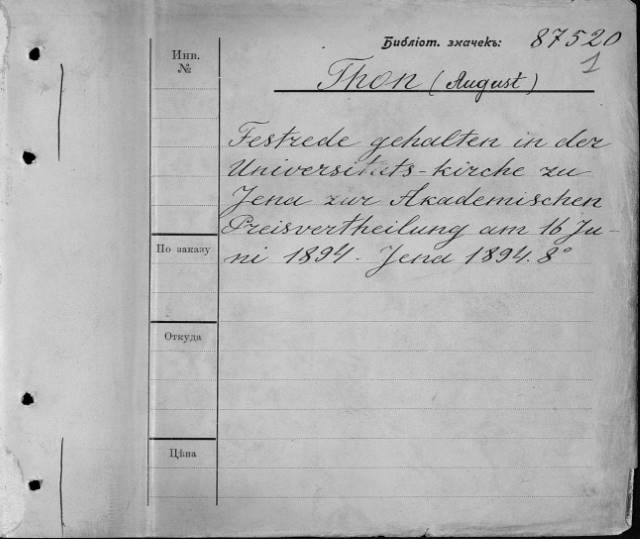 Инв.
№
Библіот. значекъ: 87520
1
Thon (August)
Festrede gehalten in der
Universitäts-kirche zu
Jena zur Akademischen
Preisvertheilung am 16 Ju-
ni 1894. Jena 1894. 8°
По заказу
Откуда
Цѣна